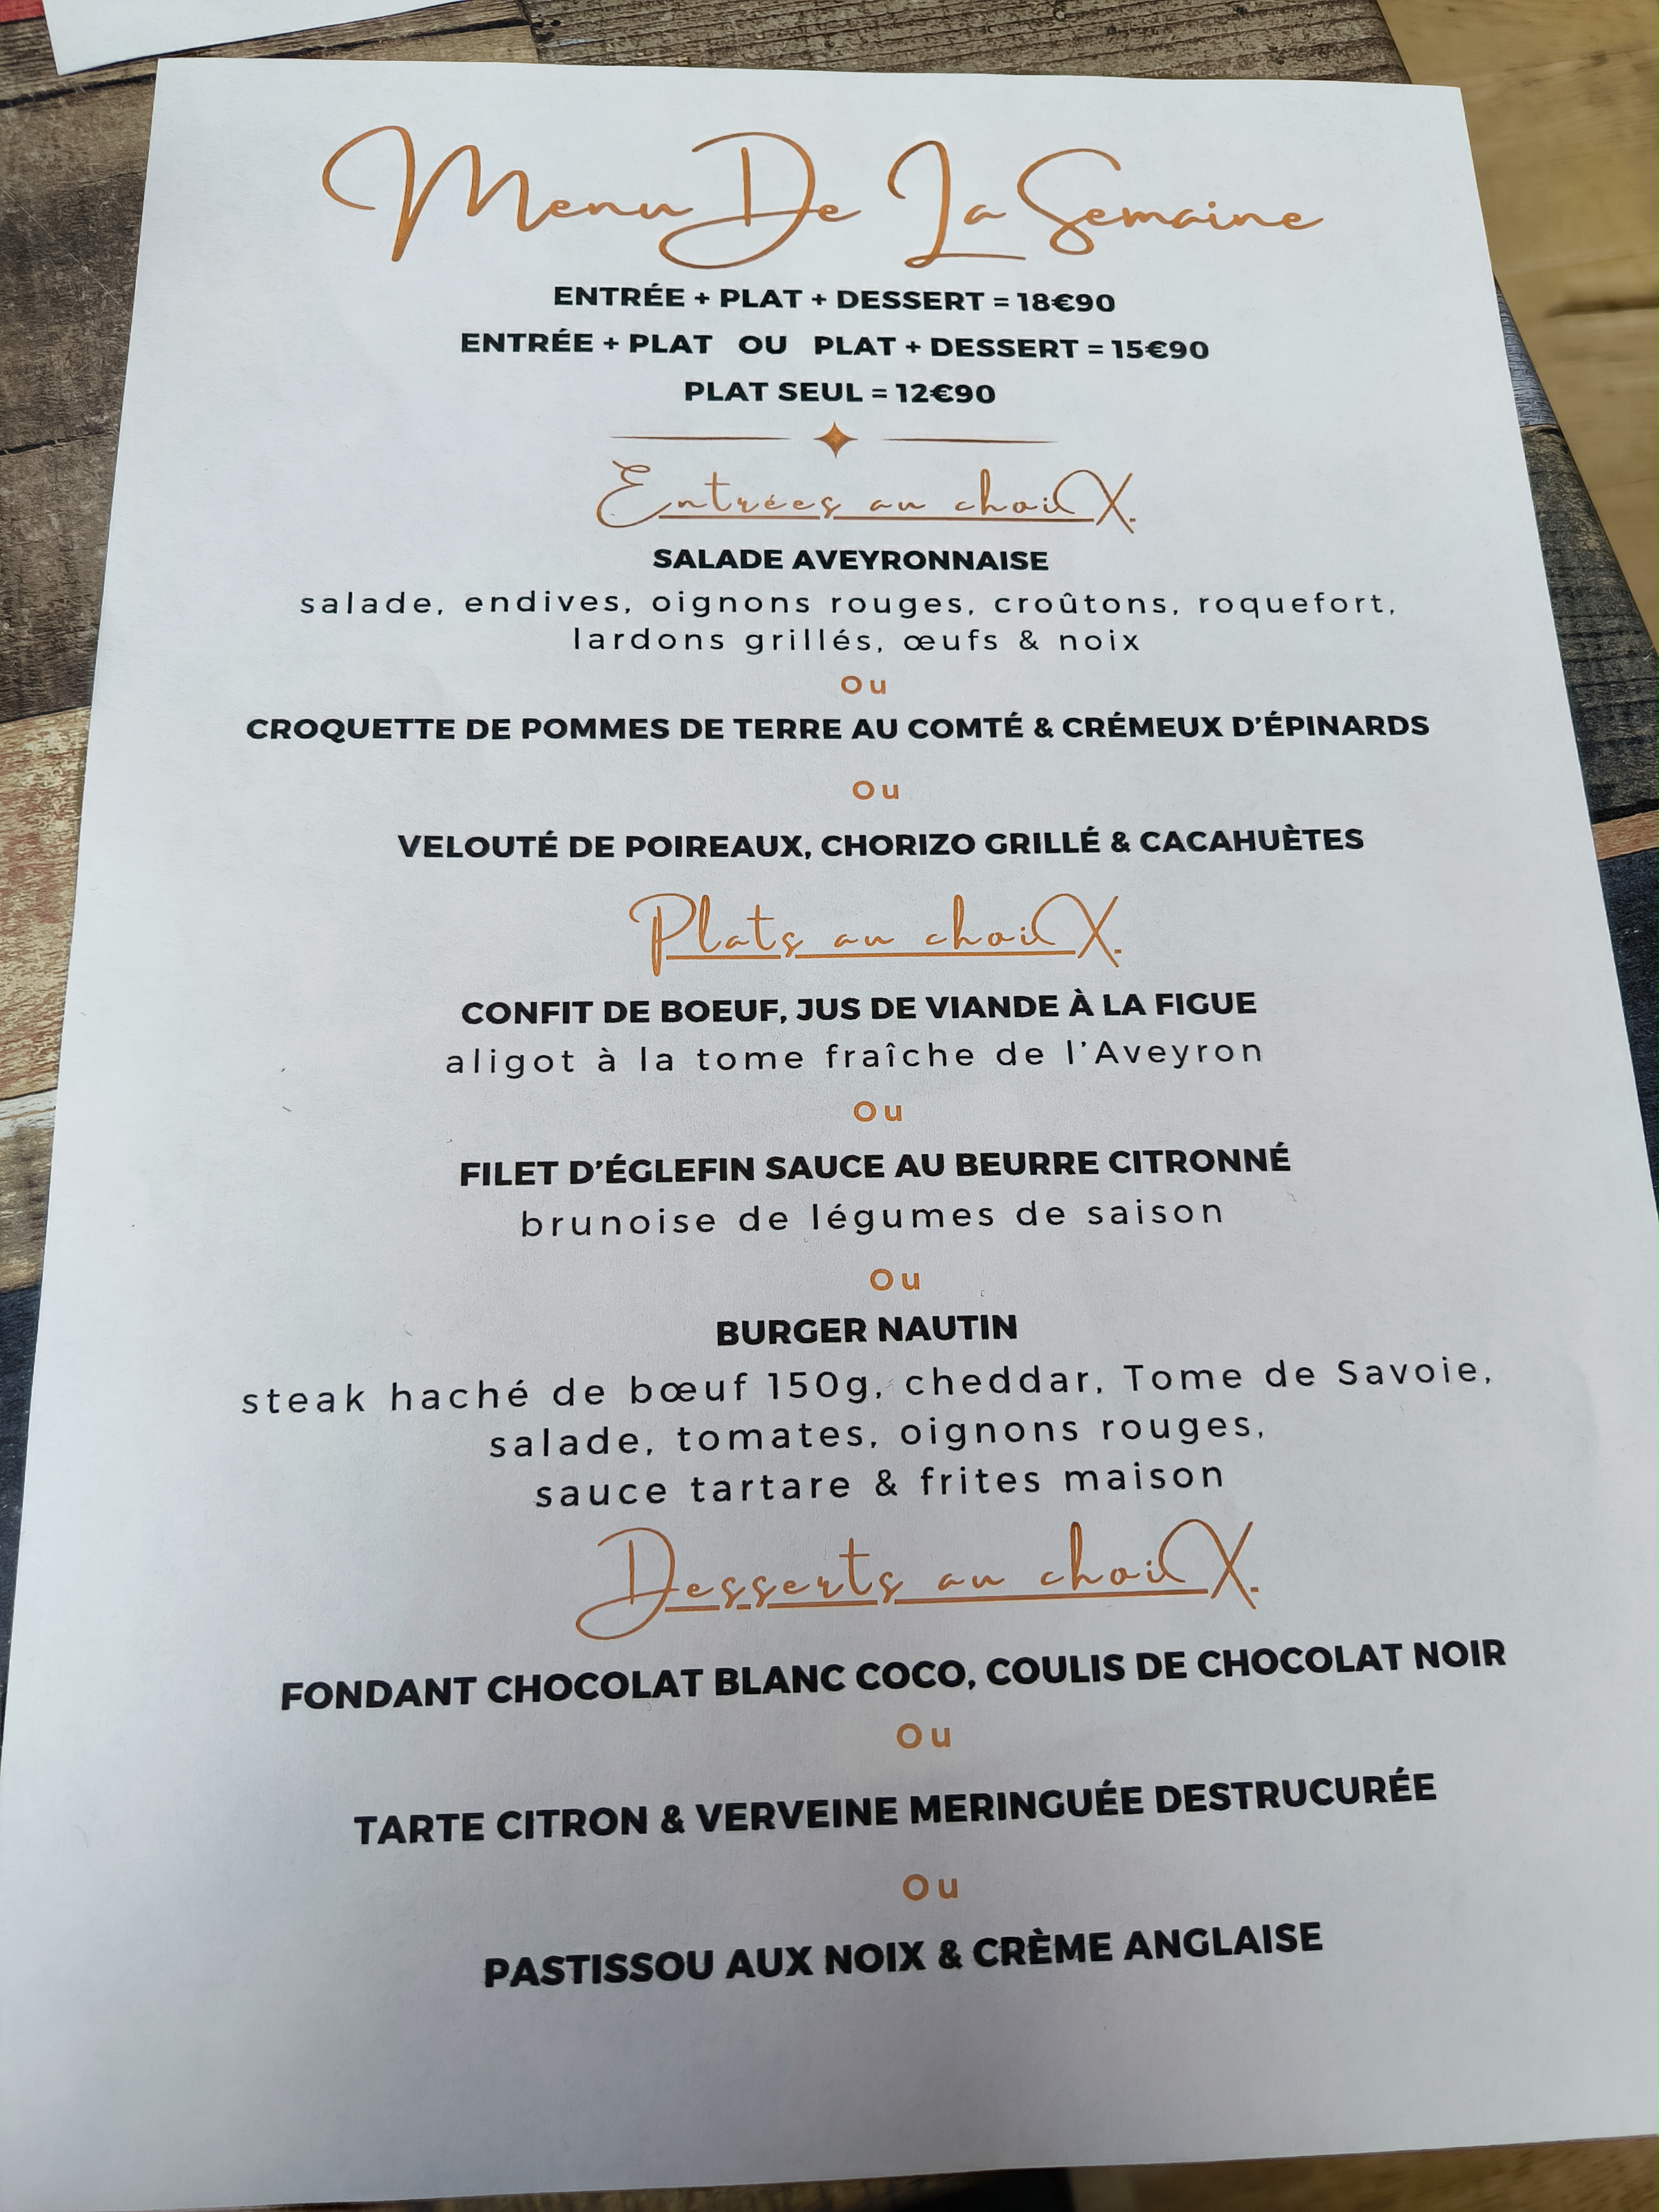 Menu De La Semaine
ENTRÉE + PLAT + DESSERT = 18€90
ENTRÉE + PLAT OU PLAT + DESSERT = 15€90
PLAT SEUL = 12€90
Entrées au choiX.
SALADE AVEYRONNAISE
salade, endives, oignons rouges, croûtons, roquefort,
lardons grillés, œufs & noix
Ou
CROQUETTE DE POMMES DE TERRE AU COMTÉ & CRÉMEUX D'ÉPINARDS
Ou
VELOUTÉ DE POIREAUX, CHORIZO GRILLÉ & CACAHUÈTES
Plats au choiX.
CONFIT DE BOEUF, JUS DE VIANDE À LA FIGUE
aligot à la tome fraîche de l'Aveyron
Ou
FILET D'ÉGLEFIN SAUCE AU BEURRE CITRONNÉ
brunoise de légumes de saison
Ou
BURGER NAUTIN
steak haché de bœuf 150g, cheddar, Tome de Savoie,
salade, tomates, oignons rouges,
sauce tartare & frites maison
Desserts au choiX.
FONDANT CHOCOLAT BLANC COCO, COULIS DE CHOCOLAT NOIR
Ou
TARTE CITRON & VERVEINE MERINGUÉE DESTRUCURÉE
Ou
PASTISSOU AUX NOIX & CRÈME ANGLAISE